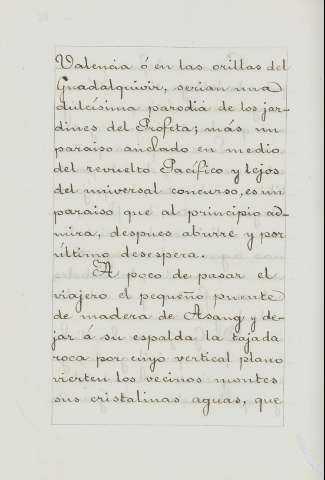 Valencia ó en las orillas del
Guadalquivir, serian una
dulcísima parodia de los jar-
dines del Profeta; más un
paraiso anclado en medio
del revuelto Pacífico y lejos
del universal concurso, es un
paraiso que al principio ad-
mira, despues aburre y por
último desespera.
A poco de pasar el
viajero el pequeño puente
de madera de Asang y de-
jar á su espalda la tajada
roca por cuyo vertical plano
vierten los vecinos montes
sus cristalinas aguas, que